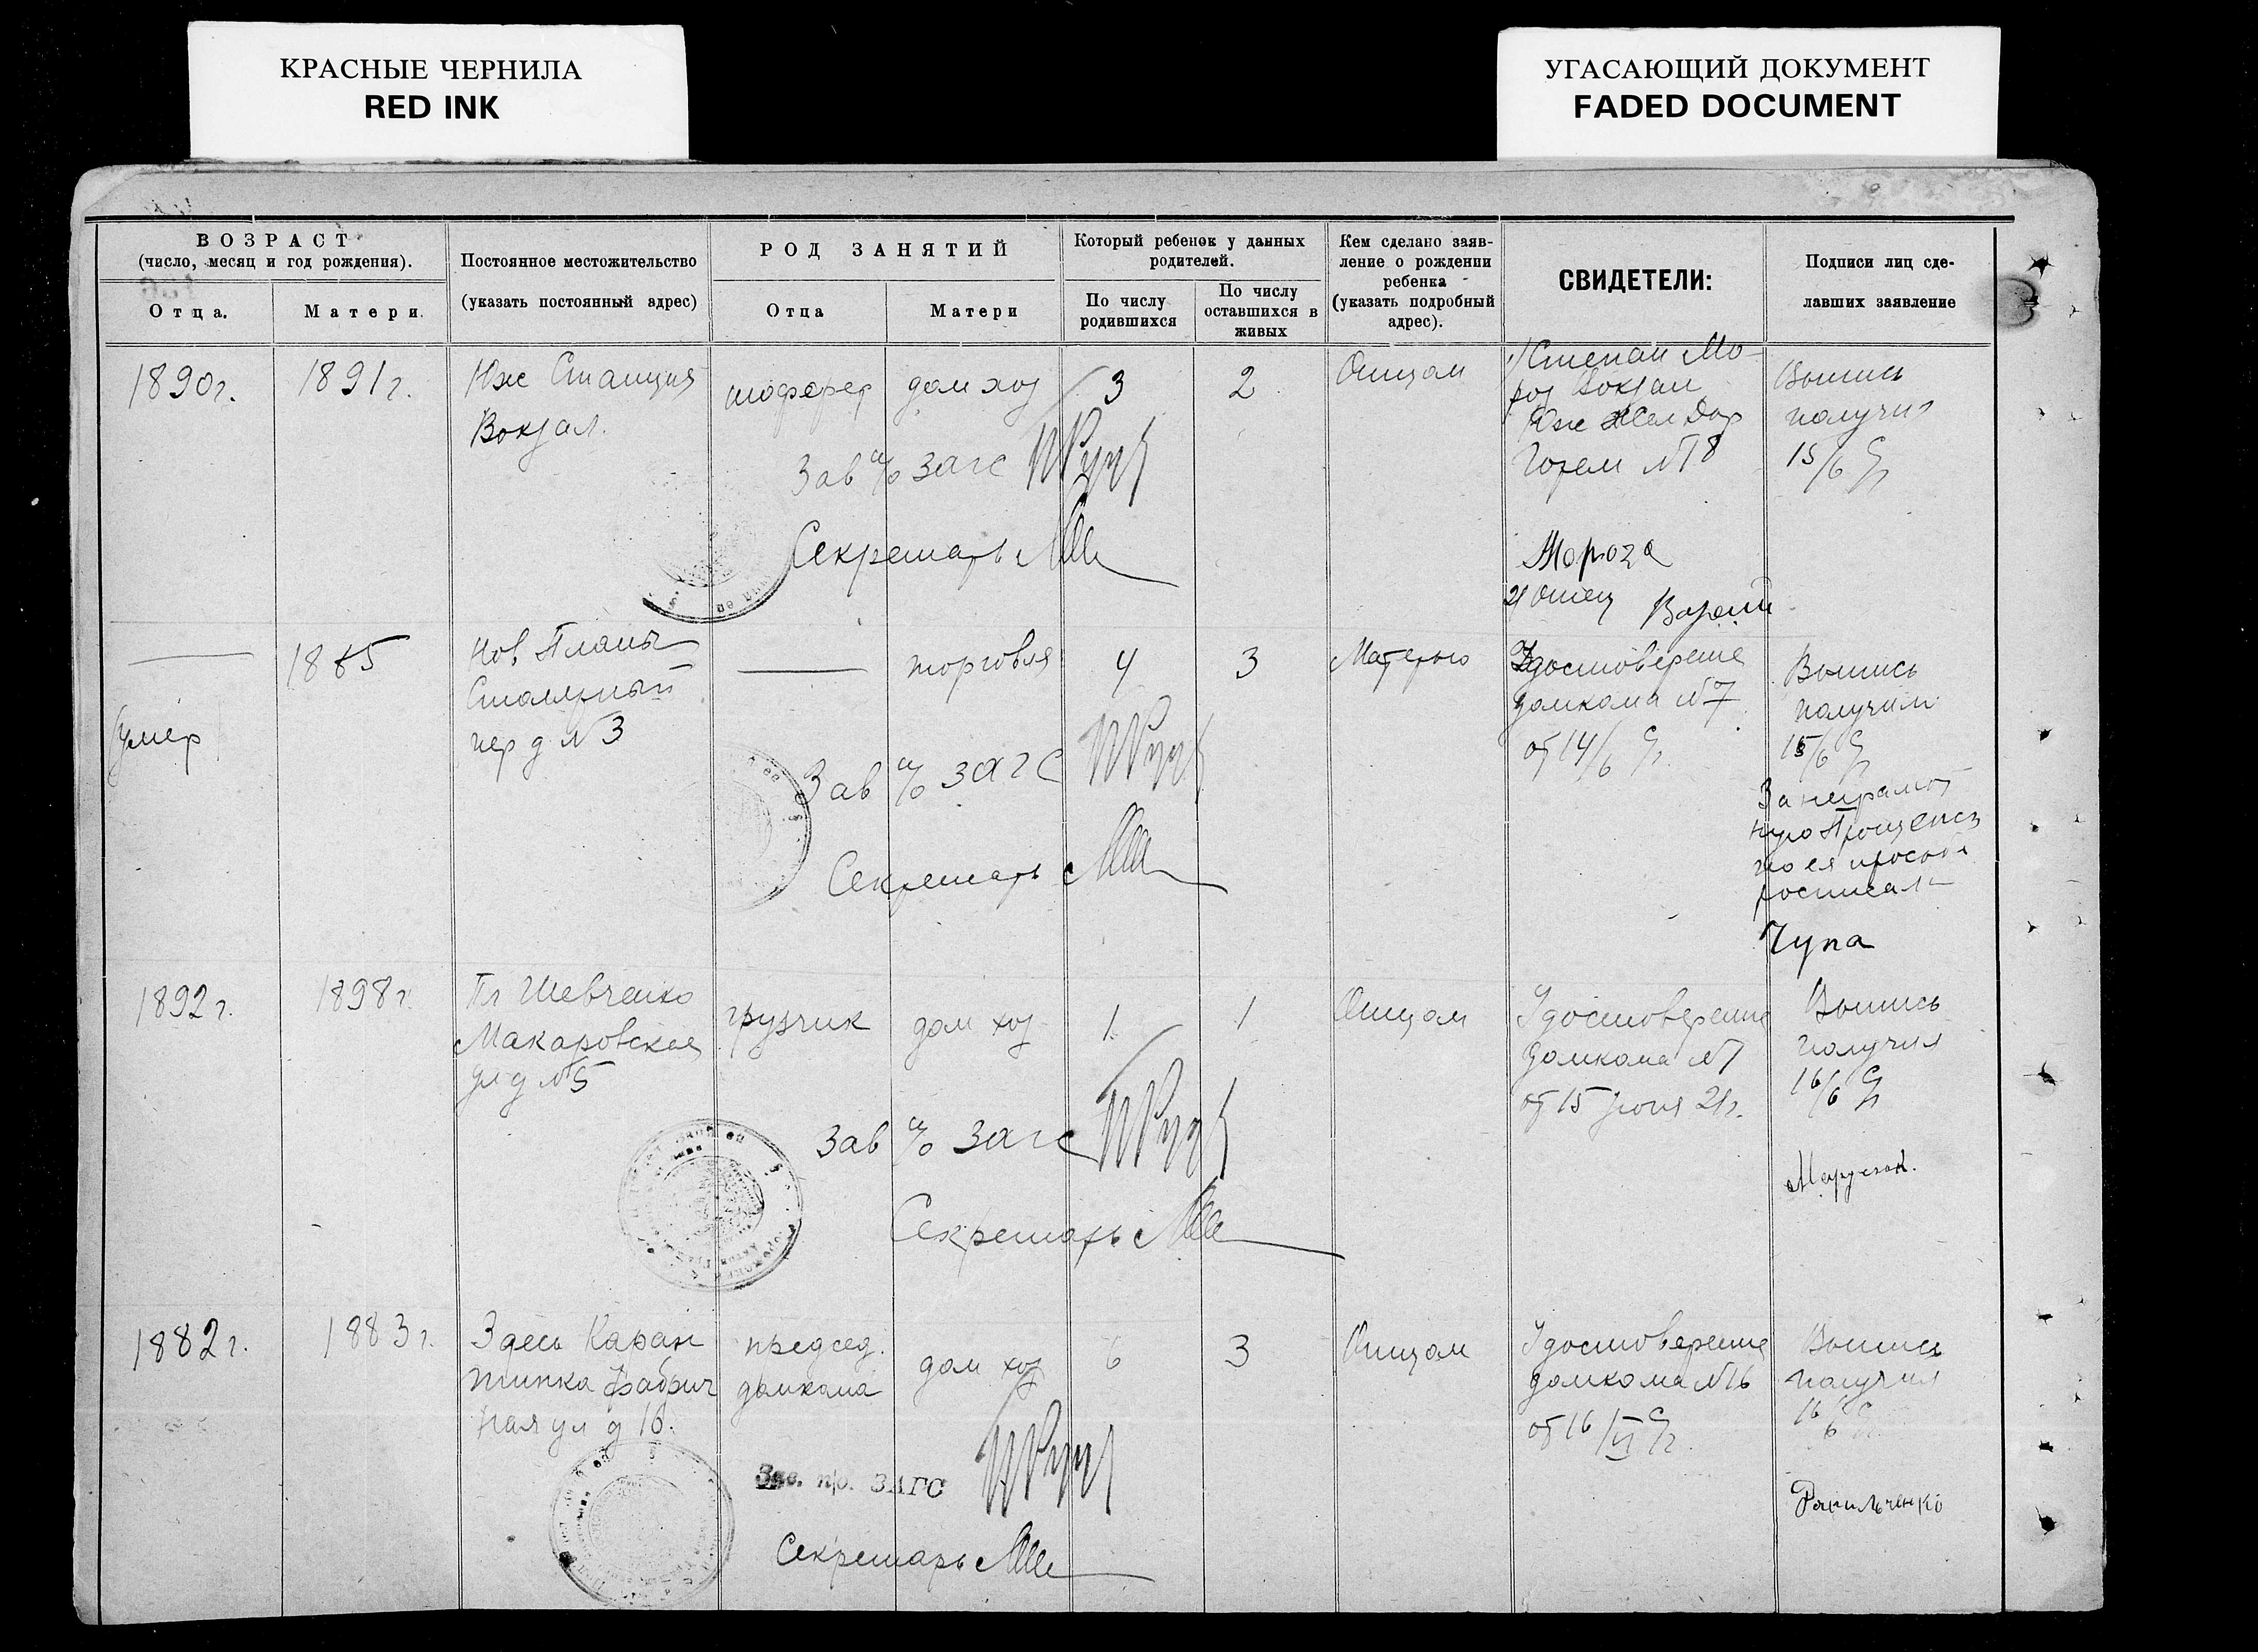 КРАСНЫЕ ЧЕРНИЛА
RED INK
УГАСАЮЩИЙ ДОКУМЕНТ
FADED DOCUMENT
ВОЗРАСТ
(число, месяц и год рождения).
Отца.
Матери.
Постоянное местожительство
(указать постоянный адрес)
РОД ЗАНЯТИЙ
Отца
Матери
Который ребенок у данных
родителей.
По числу
родившихся
По числу
оставшихся в
живых
Кем сделано заяв-
ление о рождении
ребенка
(указать подробный
адрес).
СВИДЕТЕЛИ:
Подписи лиц сде-
лавших заявление
1890 г.
1891 г.
Юж Станция
Вокзал.
шофер
дом хоз
3
2
Отцом
1) Степан Мо-
роз Вокзал
Юж Жел Дор
№ 18
Мороза
2) Отец
Выпись
получил
15/6
Зав п/о ЗАГС
Секретарь
умер
1885
Нов. Планы
Столярный
пер д № 3
торговля
4
3
Матерью
Удостоверение
домкома № 7
от 14/6
Выпись
получил
15/6
За неграмот
ную
по ея просьбе
росписал
Чупа
Зав п/о ЗАГС
Секретарь
1892 г.
1898 г.
Пл Шевченко
Макаровская
ул д № 5
грузчик
дом хоз
1
1
Отцом
Удостоверение
домкома №
от 15 июня 21 г.
Выпись
получил
16/6
Зав п/о ЗАГС
Секретарь
1882 г.
1883 г.
Здесь Каран
тинка Фабрич
ная ул д 16.
председ.
домкома
дом хоз
6
3
Отцом
Удостоверение
домкома № 16
от 16/VI
Выпись
получил
16/6
Зав. п/о. ЗАГС
Секретарь